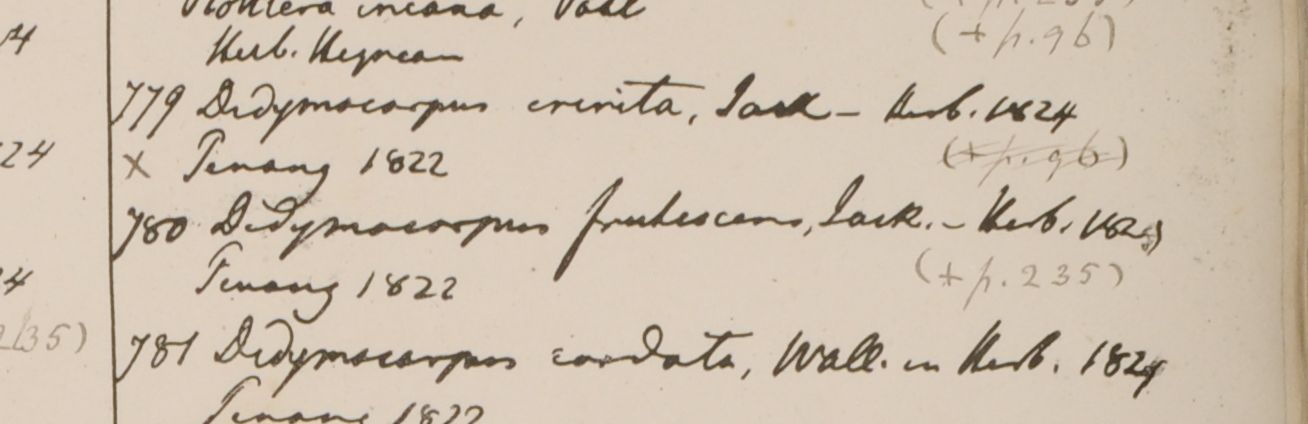 Rottlera incana, Wall
Herb. Heynean
(+ p. 96)
779 Didymocarpus crinita, Jack – Herb. 1824
24
x Penang 1822
(+ p. 96)
780 Didymocarpus frutescens, Jack. – Herb.
Penang 1822
(+ p. 235)
781 Didymocarpus cordata, Wall. in Herb. 1824
Penang 1822